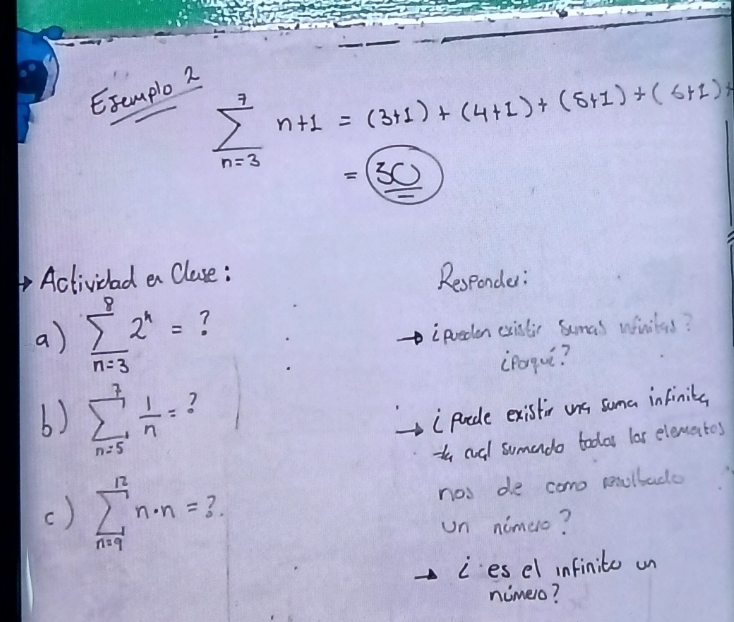 Ejemplo 2
7
∑ n+1 = (3+1) + (4+1) + (5+1) + (6+1) +
n=3
= 30
→ Actividad en Clase:
8
a) ∑ 2ⁿ = ?
n=3
7
b) ∑ 1/n = ?
n=5
12
c) ∑ n·n = ?.
n=9
Responder:
→ ¿pueden existir sumas infinitas?
¿Porqué?
→ ¿puede existir una suma infinita,
la cual sumando todos los elementos
nos de como resultado
un número?
→ ¿es el infinito un
número?